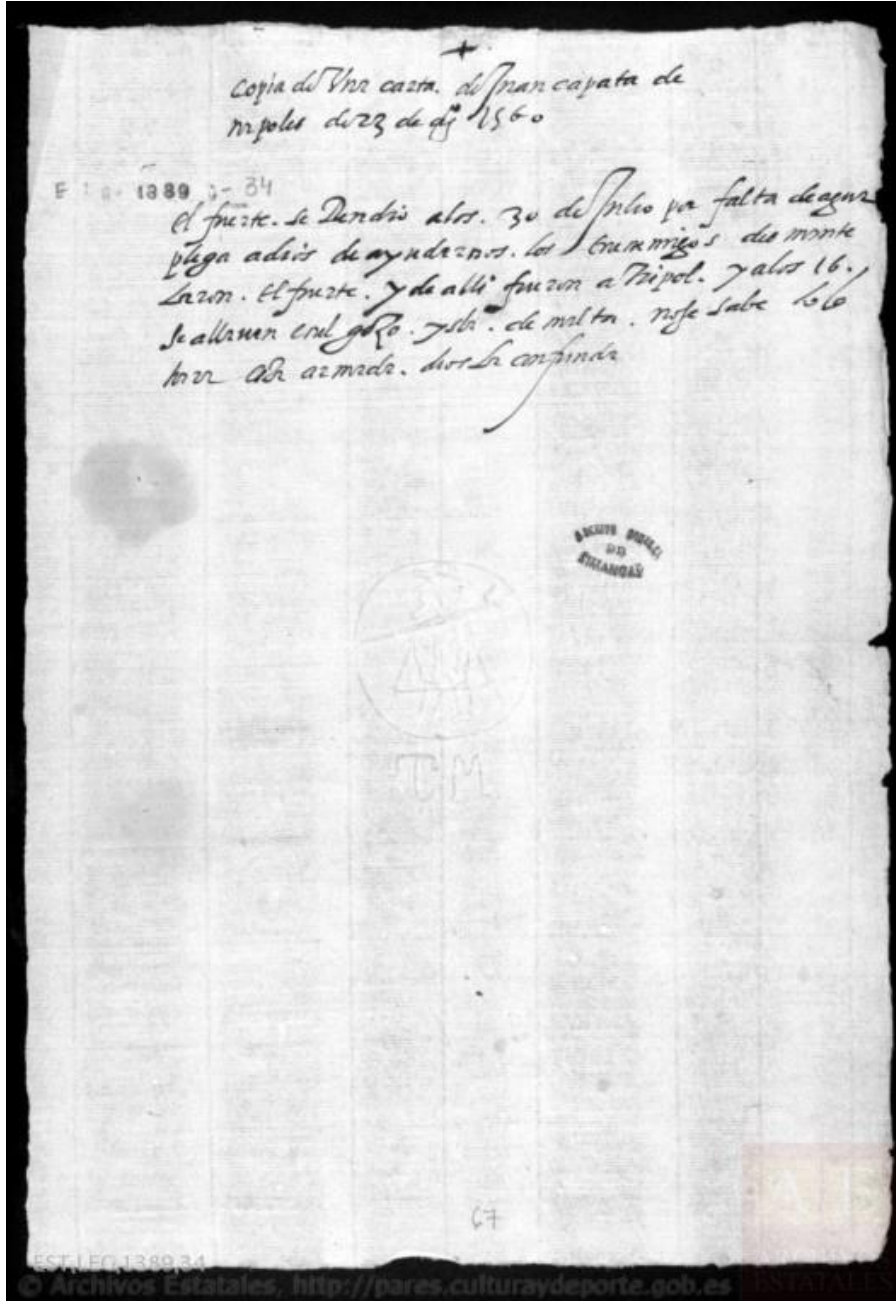 +
Copia de Una carta. de Juan çapata de
napoles de 23 de agº 1560
E 1389 - 34
el fuerte. se Rendio alos. 30 de Julio por falta de agua
plega a dios de ayudarnos. los enemigos desmante
laron. El fuerte. y de alli fueron a Tripol. y alos 16.
se allauan en el gozo. ysla. de malta. no se sabe lo q
hara esta armada. dios la confunda
ARCHIVO GENERAL
DE
SIMANCAS
67
EST,LEG,1389,34
© Archivos Estatales, http://pares.culturaydeporte.gob.es
ESTATALES